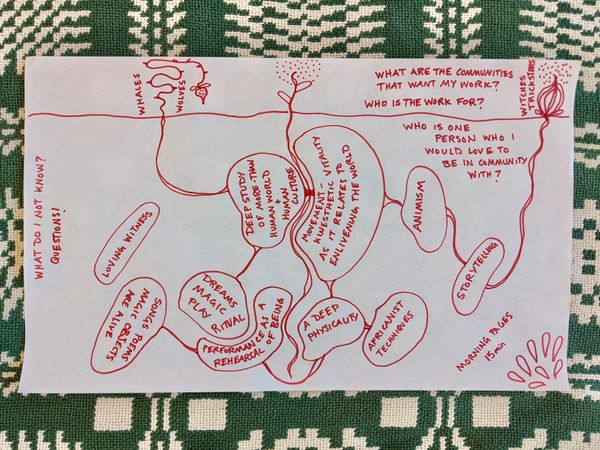 WHALES
WOLVES
WHAT ARE THE COMMUNITIES
THAT WANT MY WORK?
WHO IS THE WORK FOR?
WITCHES
TRICKSTERS
WHO IS ONE
PERSON WHO I
WOULD LOVE TO
BE IN COMMUNITY
WITH?
WHAT DO I NOT KNOW?
QUESTIONS!
DEEP STUDY
OF MORE-THAN
HUMAN WORLD
+
HUMAN
CULTURE
MOVEMENT - VITALITY
KINESTHETIC
AS IT RELATES TO
ENLIVENING THE WORLD
ANIMISM
STORYTELLING
LOVING WITNESS
DREAMS
MAGIC
PLAY
RITUAL
SONGS POEMS
MAGIC OBJECTS
ARE ALIVE
PERFORMANCE AS A
REHEARSAL OF BEING
A DEEP
PHYSICALITY
AFRICANIST
TECHNIQUES
MORNING PAGES
15 min